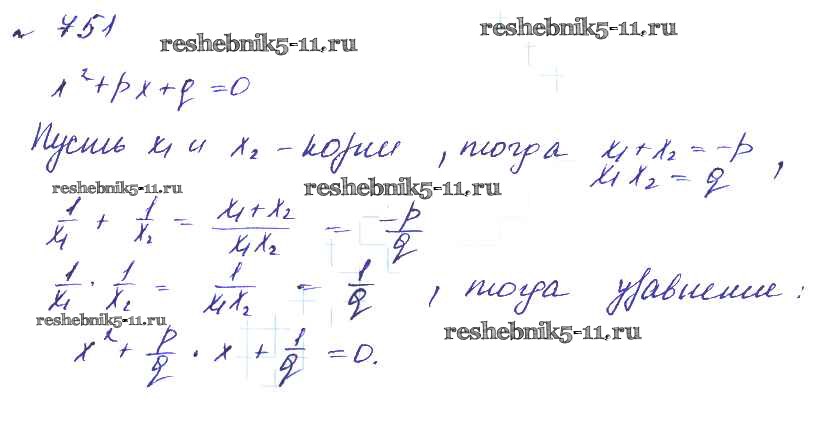 № 751
reshebnik5-11.ru reshebnik5-11.ru
x² + px + q = 0
Пусть x₁ и x₂ - корни, тогда x₁ + x₂ = -p
x₁x₂ = q,
reshebnik5-11.ru reshebnik5-11.ru
1/x₁ + 1/x₂ = (x₁ + x₂)/(x₁x₂) = -p/q
1/x₁ · 1/x₂ = 1/(x₁x₂) = 1/q, тогда уравнение:
reshebnik5-11.ru reshebnik5-11.ru
x² + p/q · x + 1/q = 0.